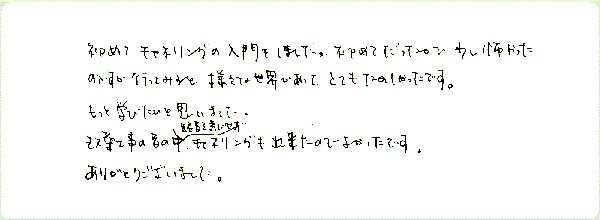 初めてチャネリングの入門をしました。初めてだったので少し怖かった
のですが行ってみると、様々な世界があって、とてもたのしかったです。
もっと学びたいと思いました。
工事の音の中、チャネリングも出来たのでよかったです。
ありがとうございました。